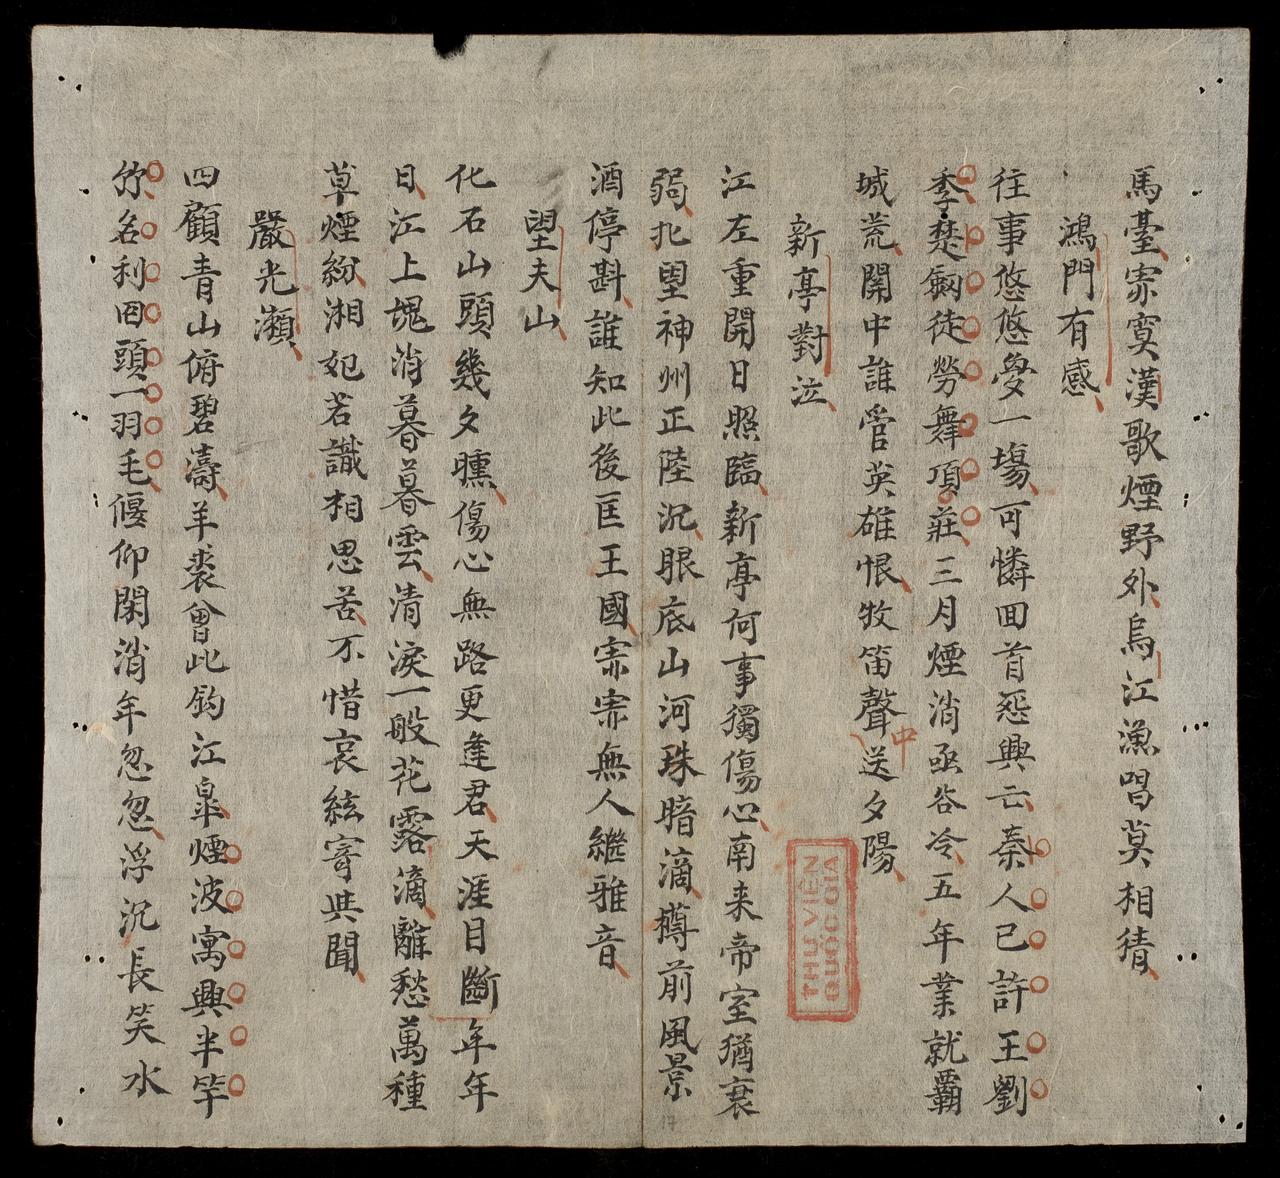 馬臺寂寞漢歌煙野外烏江漁唱莫相猜
鴻門有感
往事悠悠夢一塲可憐囬首怨興亡秦人已許王劉
季楚劔徒勞舞項莊三月煙消函谷冷五年業就覇
城荒關中誰管英雄恨牧笛聲送夕陽
中
新亭對泣
江左重開日照臨新亭何事獨傷心南来帝室猶衰
弱北望神州正陸沉眼底山河珠暗滴樽前風景
酒停斟誰知此後匡王國寂寂無人繼雅音
望夫山
化石山頭幾夕曛傷心無路更逢君天涯目斷年年
日江上塊消暮暮雲清淚一般花露滴離愁萬種
草煙紛湘妃若識相思苦不惜哀絃寄與聞
嚴光瀬
四顧青山俯碧濤羊裘曾此釣江皐煙波寓興半竿
竹名利囬頭一羽毛偃仰閑消年忽忽浮沉長笑水
THƯ VIỆN
QUỐC GIA
17